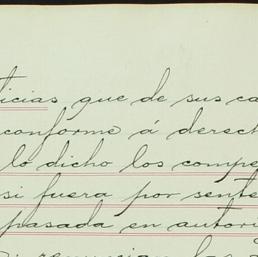 ticias que de sus ca
conforme á derech
lo dicho los compe
si fuera por sente
pasada en autori